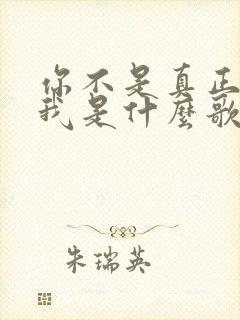 你不是真正
我是什麼歌
朱瑞英